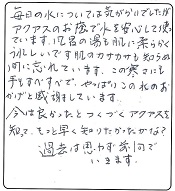 毎日の水については気がかりでしたが
アクアスのお蔭で水を安心して使っ
ています。風呂の湯も肌に柔らかく
うれしいです肌のカサカサも知らぬ
間に忘れています。この寒さにも
手もすべすべで、やっぱりこの水のお
かげと感謝しています。
今は良かったとつくづくアクアスを
知って、もっと早く知りたかったかな?
過去は思わず前向で
いきます。